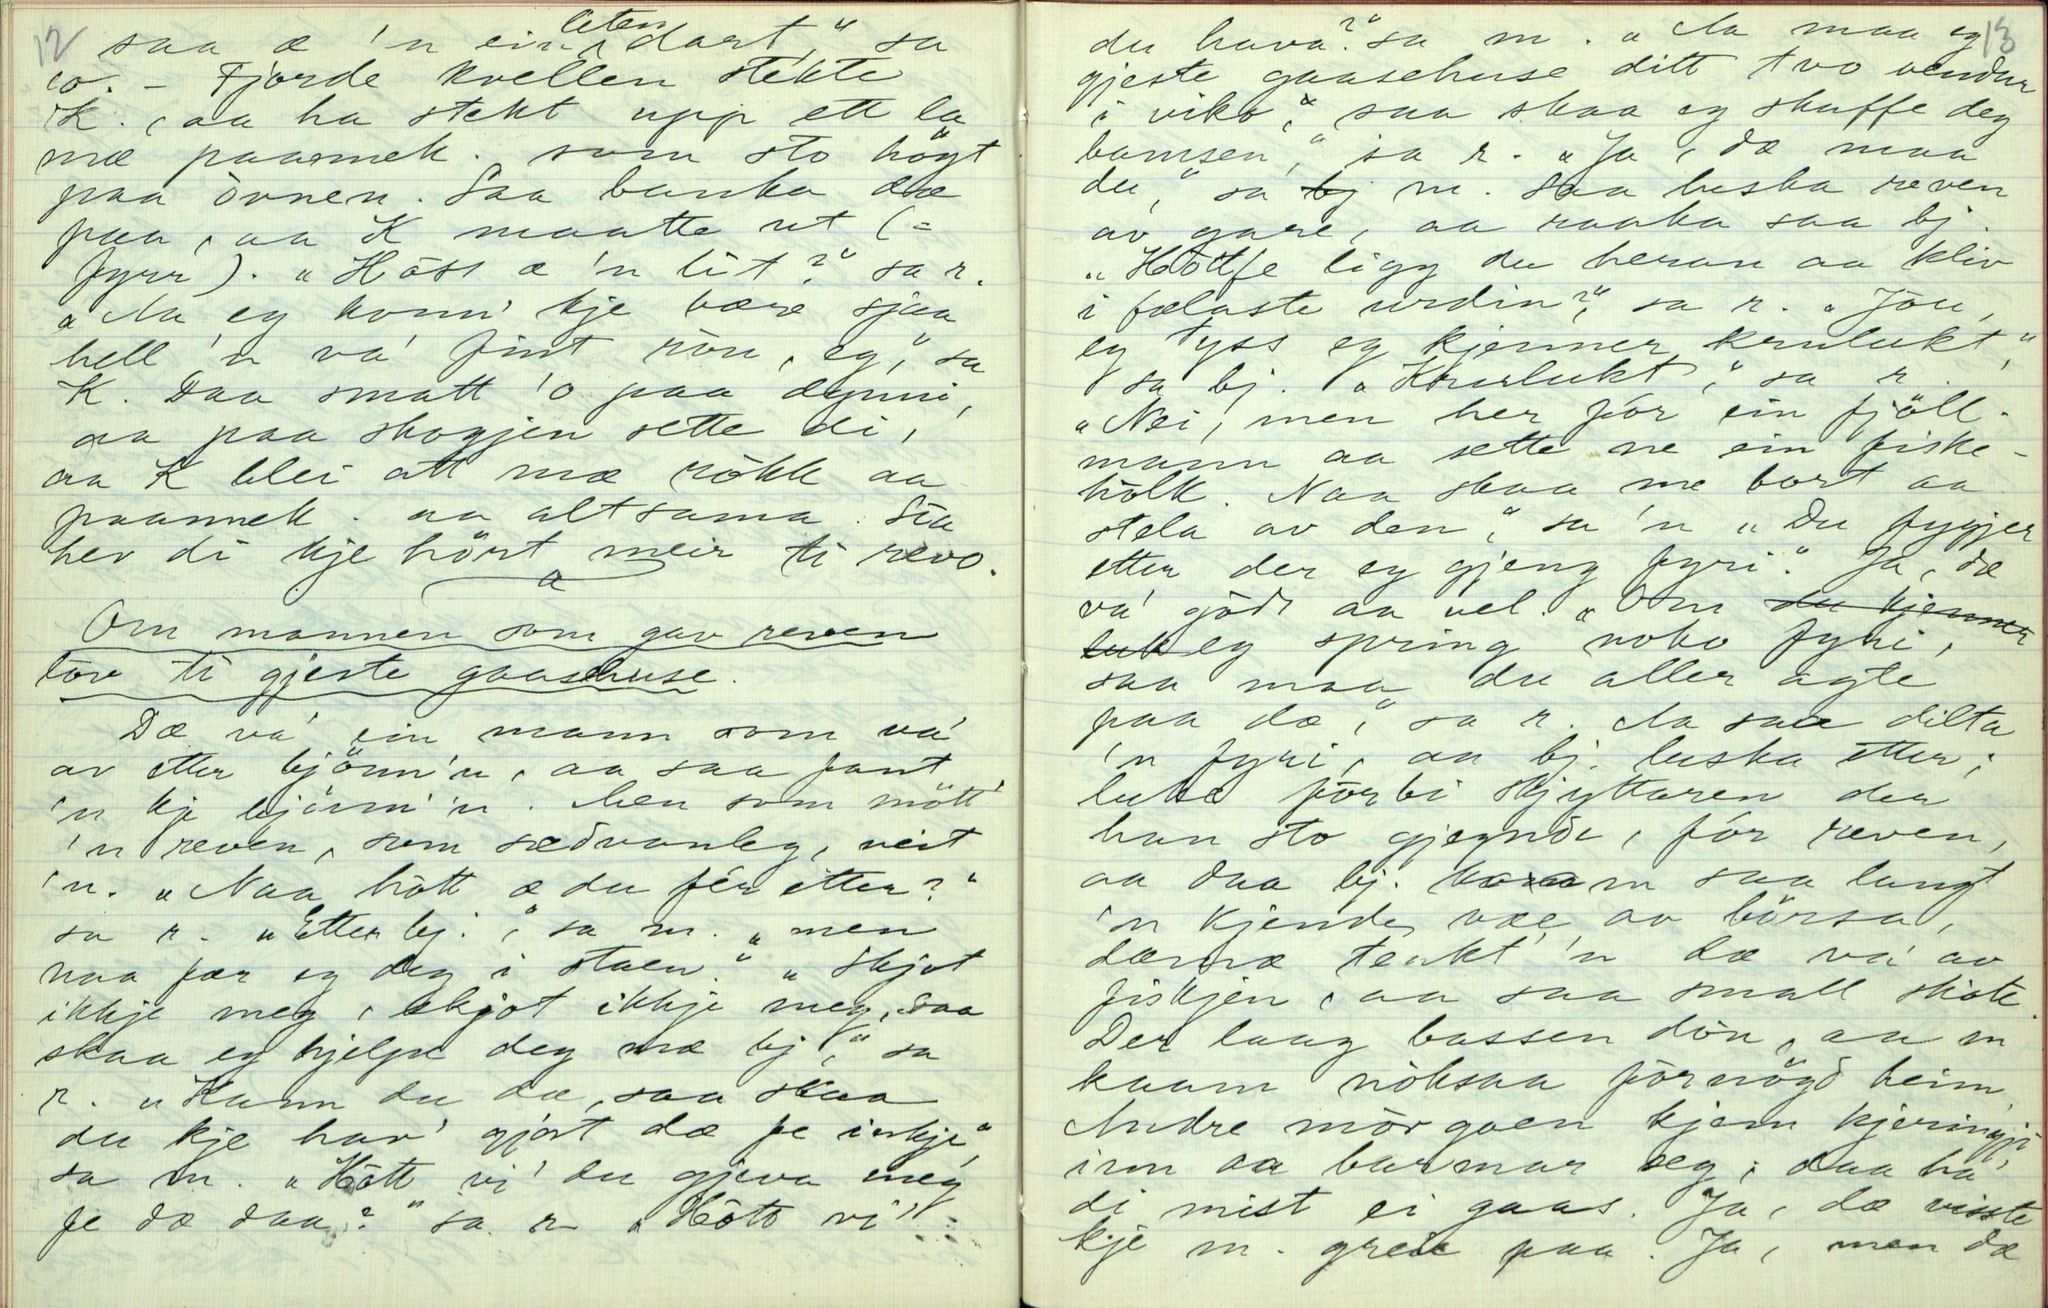 12
saa æ 'n ein liten dart," sa
o. - Fjorde kvellen stekte
K., aa ha stekt upp ett la
mæ paasmek. som sto högt
paa övnen. Saa banka dæ
paa, aa K maatte ut (=
fyrr). "Höss æ 'n lit?" sa r.
"Aa eg konn' kje være sjaa
hell 'n va' fint rön, eg," sa
K. Daa smatt 'o paa dynni,
aa paa skogjen sette di,
aa K blei att mæ rökk aa
paasmek. aa altsama. Sia
hev di kje hört meir ti revo.
Om mannen som gav reven
löv ti gjeste gaasehuse.
Dæ va' ein mann som va'
av etter björnn'n, aa saa fant
'n kje björnn'n. Men som mött'
'n reven, som sædvanleg, veit
'n. "Naa hött æ du fér etter?"
sa r. "Etter bj.," sa m. "men
naa fær eg deg i staen." "Skjot
ikkje meg, skjot ikkje meg, saa
skaa eg hjelpe deg mæ bj," sa
r. "Kann du dæ, saa skaa
du kje hav' gjort dæ fe inkje"
sa m. "Hött vi' du gjeva meg
fe dæ daa?" sa r. "Hött vi'
13
du hava?" sa m. "Aa maa eg
gjeste gaasehuse ditt tvo vendur
i viko, saa skaa eg skaffe deg
bamsen," sa r. "Ja, dæ maa
du," sa bj m. Saa luska reven
av gare, aa raaka saa bj.
"Höttfe ligg du heran aa kliv
i fælaste urdin?" sa r. "Jöu,
eg tyss eg kjenner krulukt,"
sa bj. "Krurlukt," sa r.
"Nei, men her fór ein fjöll-
mann aa sette ne ein fiske-
hölk. Naa skaa me bort aa
stela av den," sa 'n "Du fygjer
etter der eg gjeng fyri." Ja, dæ
va' gödt aa vel. "Om du kjenner
luk eg spring noko fyri,
saa maa du aller agte
paa dæ," sa r. Aa saa dilta
'n fyri, aa bj. luska etter;
luke förbi skjyttaren der
han sto gjegnde, fór reven,
aa daa bj. kaam saa langt
'n kjende væe av börsa,
dærmæ tenkt' 'n dæ va' av
fiskjen, aa saa small skote.
Der laag bassen dön, aa m
kaam nöksaa förnögd heim.
Andre mörgoen kjem kjeringji
inn aa barmar seg; daa ha
di mist ei gaas. Ja, dæ visste
kje m. greie paa. Ja, men dæ